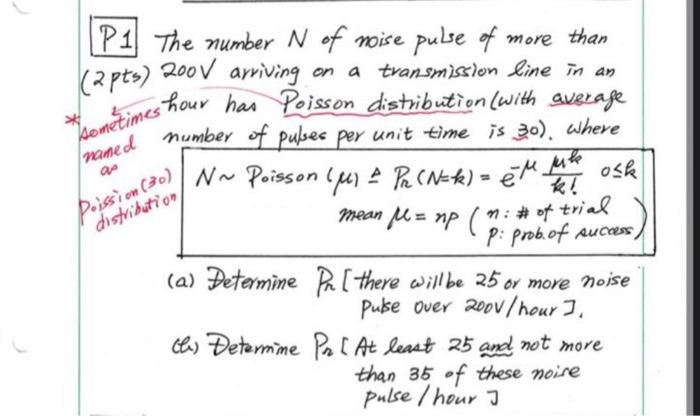 P1 The number N of noise pulse of more than
(2 pts) 200V arriving on a transmission line in an
hour has Poisson distribution (with average
number of pulses per unit time is 30). where
* sometimes
named
as
Poission (30)
distribution
N ~ Poisson (μ) ≜ Pr (N=k) = e^-μ μ^k / k! 0≤k
mean μ = np (n: # of trial
p: prob. of success)
(a) Determine Pr [there will be 25 or more noise
pulse over 200V/hour].
(b) Determine Pr [At least 25 and not more
than 35 of these noise
pulse / hour]